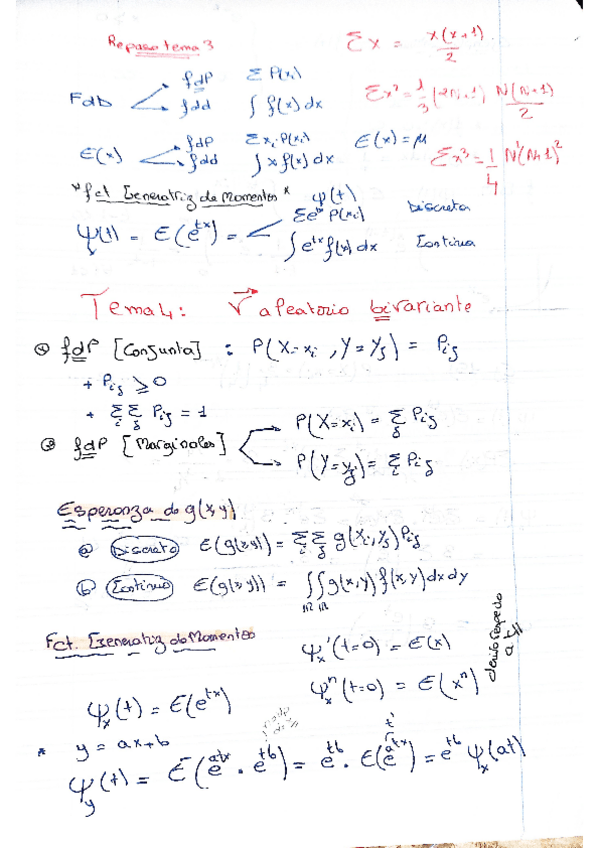 Repaso tema 3
Σx = x(x+1)/2
Fdb
fdP Σ P(xi)
fdd ∫ f(x) dx
Σx² = 1/3 (2N+1) N(N+1)/2
E(x)
fdP Σ xi·P(xi)
fdd ∫ x f(x) dx
E(x) = μ
Σx³ = 1/4 N²(N+1)²
* fct Generatriz de Momentos * ψ(t)
ψ(t) = E(e^{tx}) =
Σe^{tx} P(xi) Discreta
∫ e^{tx} f(x) dx Continua
Tema 4: V aleatorio bivariante
① fdP [Conjunta] : P(X=xi, Y=yj) = Pij
+ Pij ≥ 0
+ Σi Σj Pij = 1
② fdP [Marginales]
P(X=xi) = Σj Pij
P(Y=yj) = Σi Pij
Esperanza de g(x,y)
ⓐ Discreta E(g(x,y)) = Σi Σj g(xi,yj) Pij
ⓑ Continua E(g(x,y)) = ∫ℝ ∫ℝ g(x,y) f(x,y) dx dy
Fct. Generatriz de Momentos
ψx'(t=0) = E(x)
ψx^n(t=0) = E(x^n)
ψx(t) = E(e^{tx})
* y = ax+b
ψy(t) = E(e^{atx} · e^{tb}) = e^{tb} · E(e^{atx}) = e^{tb} ψx(at)